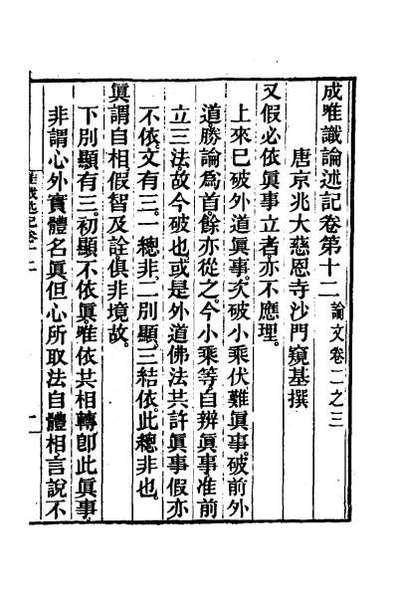 成唯識論述記卷第十二 論文卷二之三
唐京兆大慈恩寺沙門窺基撰
又假必依眞事立者亦不應理。
上來已破外道眞事。次破小乘伏難眞事。破前外
道。勝論爲首。餘亦從之。今小乘等。自辨眞事。准前
立三法。故今破也。或是外道佛法共許眞事假亦
不依。文有三。一總非。二別顯。三結依。此總非也。
眞謂自相。假智及詮。俱非境故。
下別顯有三。初顯不依眞。唯依共相轉。卽此眞事。
非謂心外實體名眞。但心所取法自體相。言說不